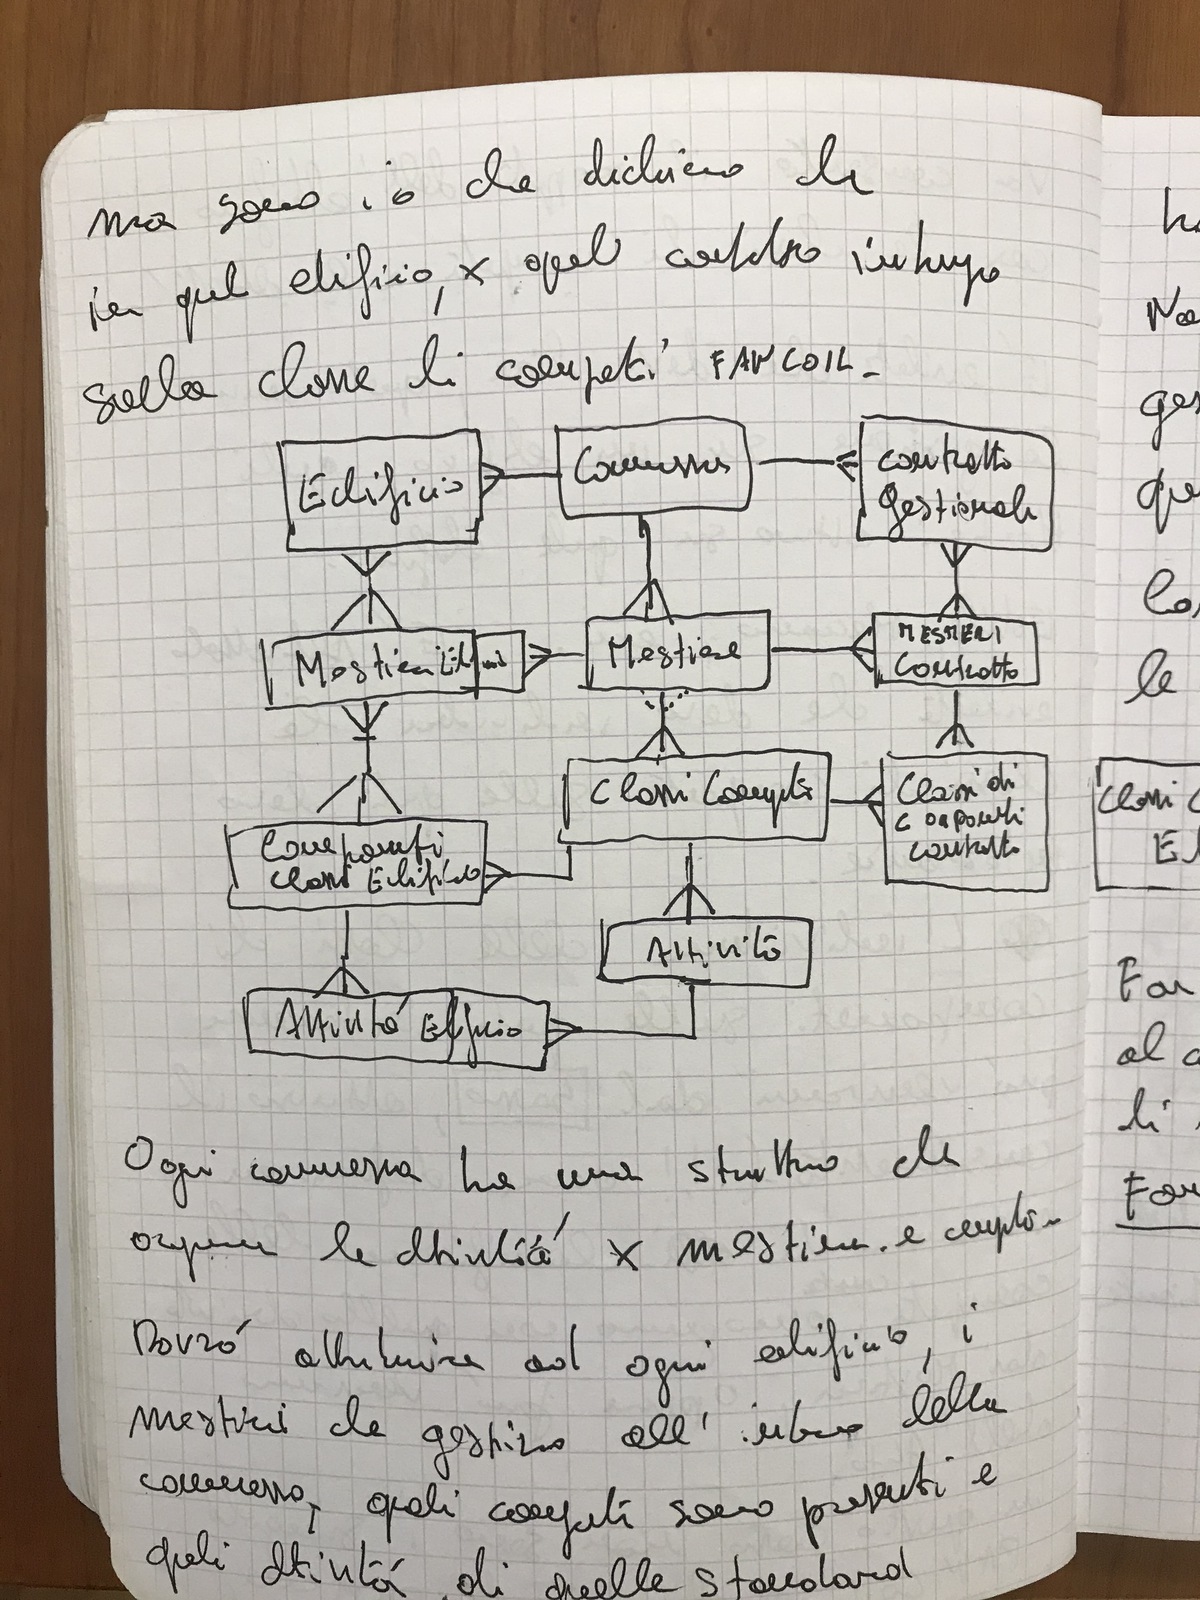 ma sono io che dichiaro che
in quel edificio, x quel contratto intervengo
sulla classe di componenti FANCOIL -
Edificio
Commessa
contratto
gestionale
Mestieri Edificio
Mestiere
MESTIERI
Contratto
Classi Compti
Classi di
componenti
contratto
Componenti
Classi Edificio
Attività
Attività Edificio
Ogni commessa ha una struttura che
organizza le attività x mestiere e
Dovrò attribuire ad ogni edificio, i
mestieri da gestire all'interno della
commessa, quali compti sono presenti e
quali attività di quelle standard
Classi
No
ges
le
For
al
di
For